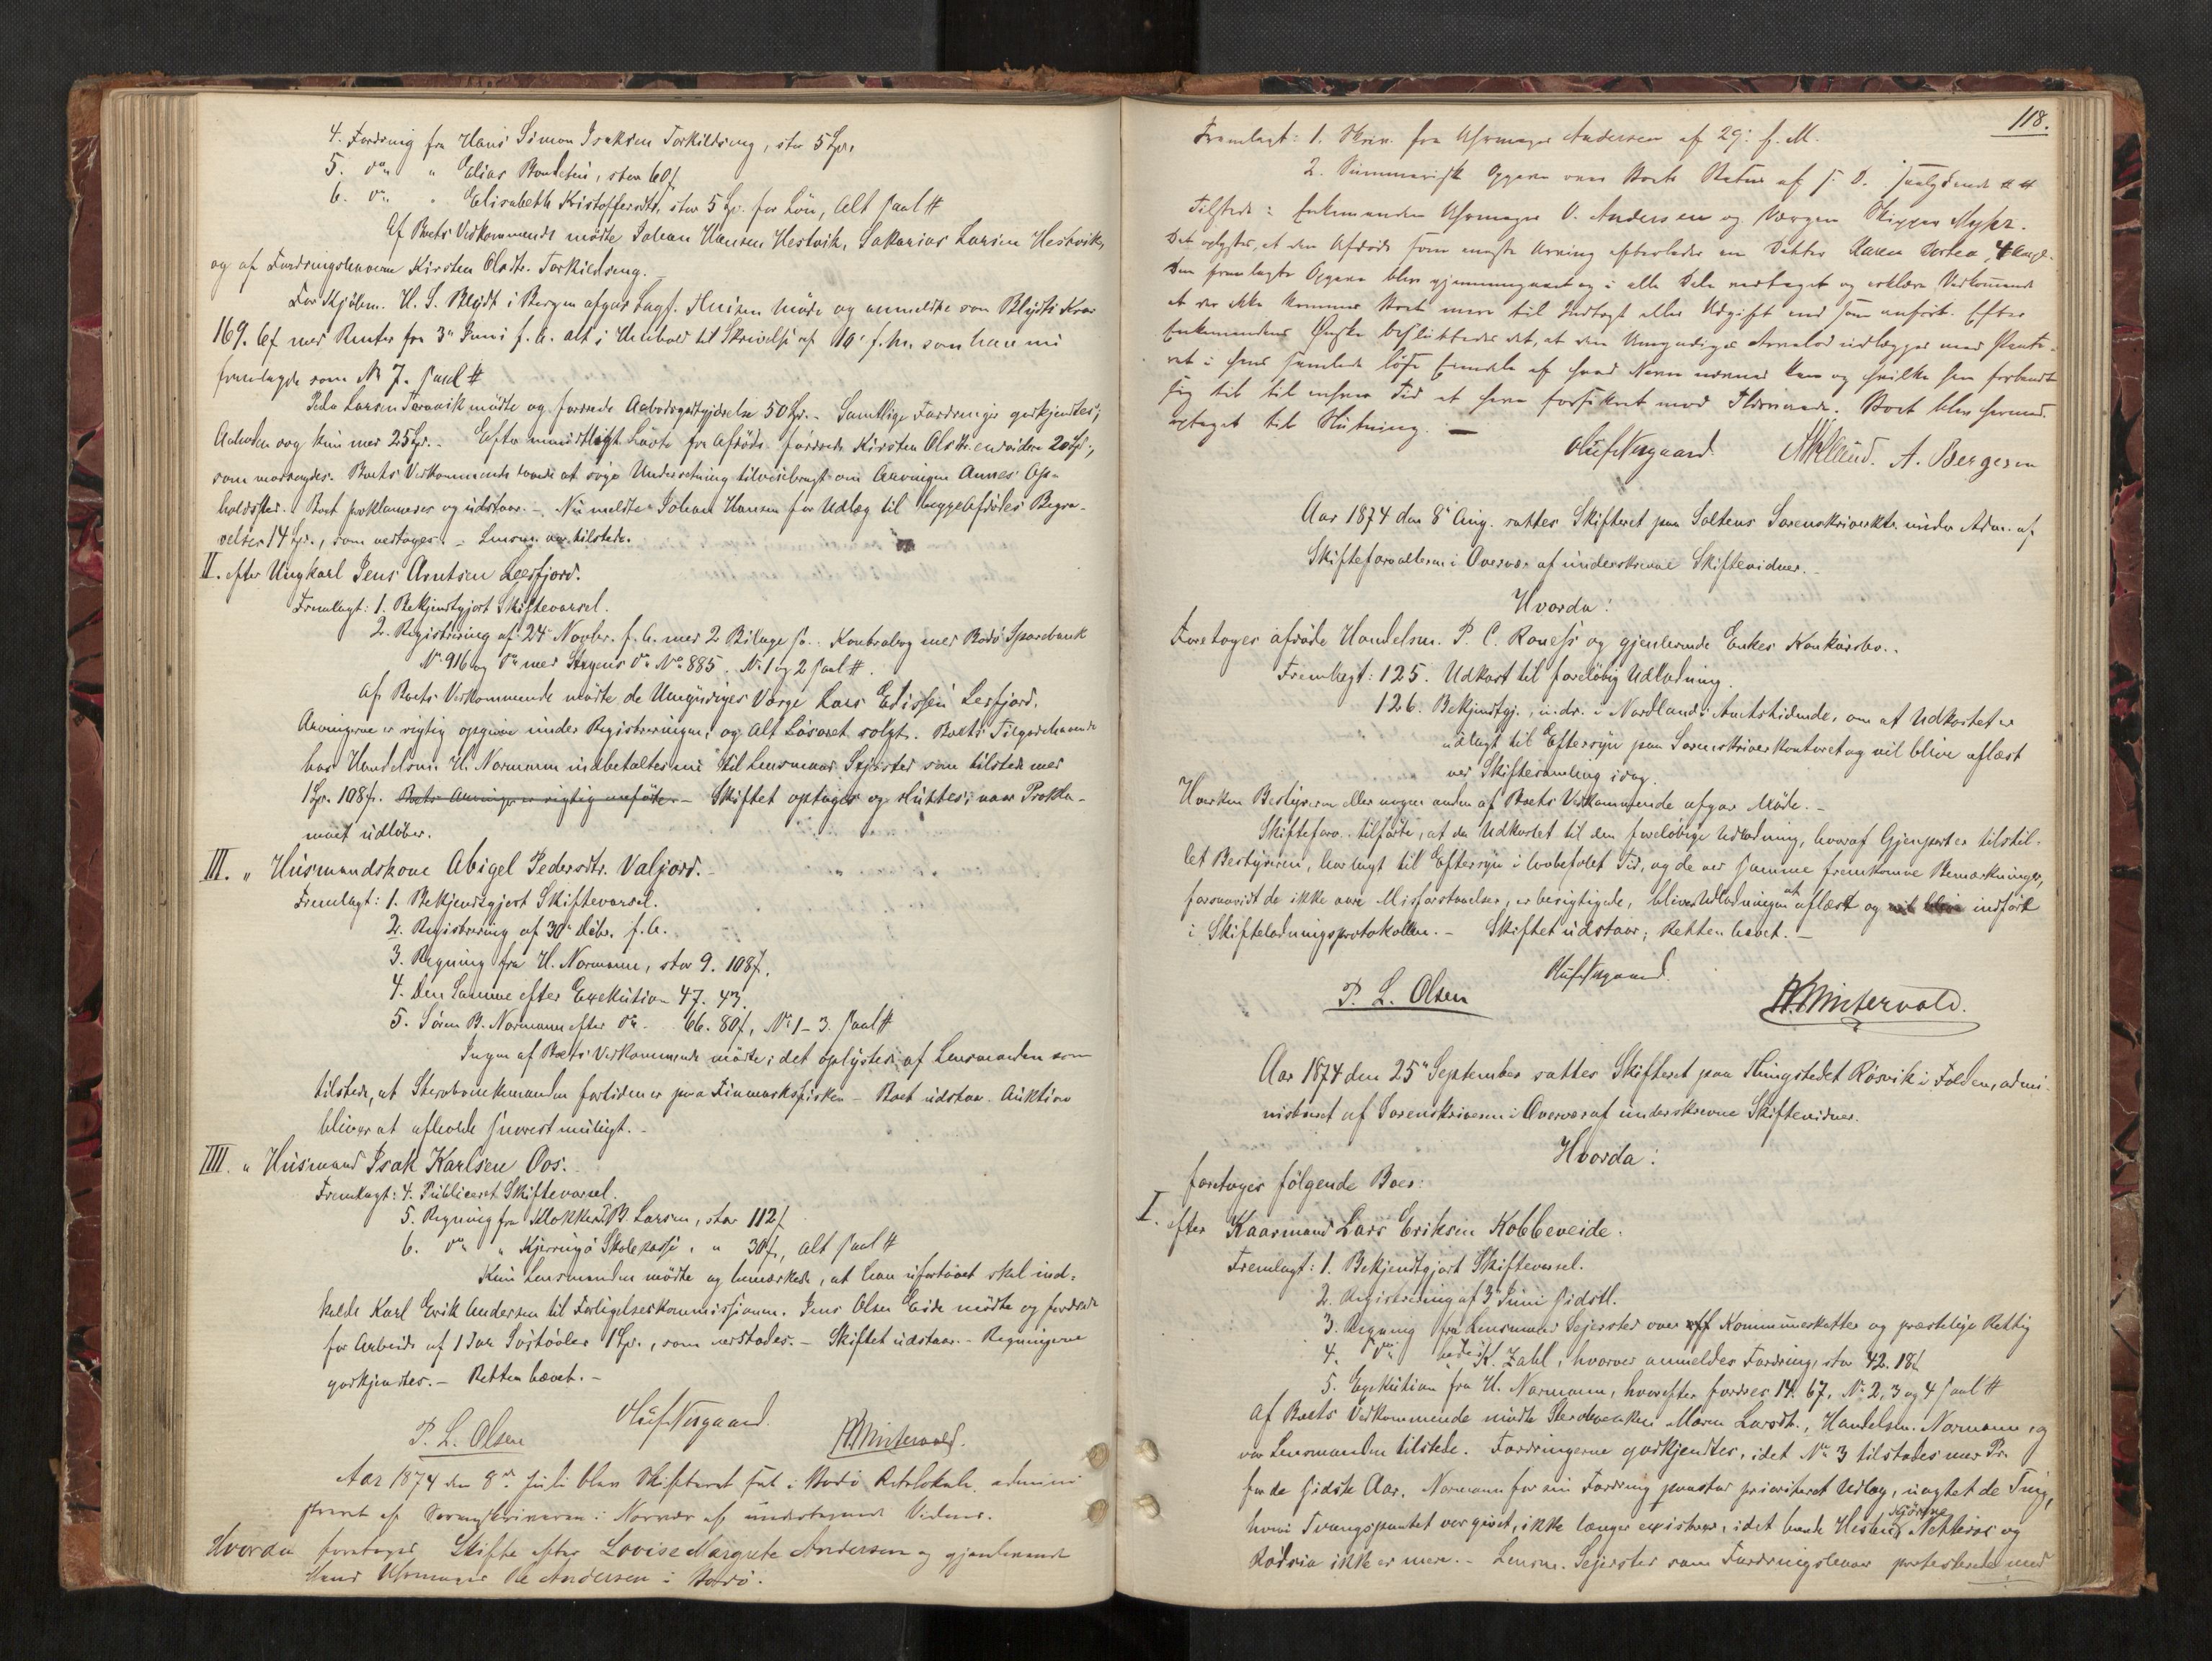 4. Fordring fra Hans Simon Isaksen Torkildseng, stor 5 Spd.
5. do " Elias Bendeksen, stor 60 ß
6. do " Elisabeth Kristoffersdtr, stor 5 Spd. for Løn, Alt saal #
Af Boets Vedkommende mødte Johan Hansen Hestvik, Sakarias Larsen Hestvik,
og af Fordringshaverne Kirsten Olsdtr. Torkildseng. –
For Kjøbm. H. S. Blydt i Bergen afgav Sagf. Knizen Møde og anmeldte som Blydts Krav
169. 6 ß med Renter fra 3die Juni f. A. alt i Henhold til Skrivelse af 10' f. M. som blev nu
fremlagde som No 7. saal #
Peder Larsen Taravik mødte og fordrede Aabodsgodtgjørelse 50 Spd. – Samtlige Fordringer godkjendtes,
Aaboden dog kun med 25 Spd. – Efter mundtligt Løvte fra Afdøde fordrede Kirsten Olsdtr. endvidere 20 Spd.,
som modsagdes. Boets Vedkommende lovede at søge Underretning tilveiebragt om Arvingen Annes Op-
holdssted. Boet proklameres og udstaar. – Nu meldte Johan Hansen for Udlæg til begge Afdødes Begra-
velser 14 Spd., som vedtoges. – Lensm. var tilstede.
II. efter Ungkarl Jens Arntsen Leerfjord.
Fremlagt: 1. Bekjendtgjort Skiftevarsel.
2. Registrering af 24 Novbr. f. A. med 2 Bilage sa. Kontrabog med Bodø Sparebank
No 916 og do med Steigens do No 885. No 1 og 2 saal #.
Af Boets Vedkommende mødte de Umyndiges Værge Lars Edissen Lerfjord.
Arvingerne er rigtig opgivne under Registreringen, og Alt Løsøret solgt. Boets Tilgodehavende
hos Handelsm. H. Normann indbetaltes nu til Lensmand Sejersted som tilstede med
1 Spd. 108 ß. Boets Arvinger er rigtig anførte – Skiftet optages og sluttes, naar Prokla-
maet udløber.
III. " Husmandskone Abigel Pedersdtr. Valjord. –
Fremlagt: 1. Bekjendtgjort Skiftevarsel.
2. Registrering af 30' Decbr. f. A.
3. Regning fra H. Normann, stor 9. 108 ß.
4. Den Samme efter Exekution 47. 43.
5. Søren B. Normann efter do 66. 80 ß, No 1–3. saal #
Ingen af Boets Vedkommende mødte; det oplystes af Lensmanden som
tilstede, at Sterboenkemanden fortiden er paa Finmarksfisken – Boet udstaar. Auktion
bliver at afholde snarest muligt. –
IIII. " Husmand Isak Karlsen Oos. –
Fremlagt: 4. Publiceret Skiftevarsel.
5. Regning fra Klokker B. Larsen, stor 112 ß
6. do " Kjerringø Skolekasse, " 30 ß, alt saal #
Kun Lensmanden mødte og bemærkede, at han ufortøvet skal ind-
kalde Karl Erik Andersen til Forligelseskommissionen. Jens Olsen Eide mødte og fordrede
for Arbeide af 1 Par Søstøvler 1 Spd., som vedtoges. – Skiftet udstaar. – Regningerne
godkjendtes. – Retten hævet. –
Oluf Nergaard.
P. L. Olsen H. Mintervold.
Aar 1874 den 8de Juli blev Skifteret sat i Bodø Retslokale, admini
streret af Sorenskriveren i Nærvær af undertegnede Vidner.
Hvorda foretoges Skifte efter Lovise Margrete Andersen og gjenlevende
Mand Uhrmager Ole Andersen i Bodø.
118.
Fremlagt: 1. Skriv. fra Uhrmager Andersen af 29' f. M.
2. Summarisk Opgave over Boets Status af s. D. saalydende # #
Tilstede: Enkemanden Uhrmager O. Andersen og Værgen Skipper
Det oplystes, at den Afdøde som eneste Arving efterlader en Datter Karen Dortea, 4 Aar gl.
Den fremlagte Opgave blev gjennemgaaet og i alle Dele vedtaget og erklære Vedkommende
at der ikke kommer Boet mere til Indtægt eller Udgift end som anført. Efter
Enkemandens Ønske besluttedes det, at den Umyndiges Arvelod udlægges med Pante-
ret i hans samlede løse Eiendele af hvad Navn nævnes kan og hvilke han forbandt
sig til til enhver Tid at have forsikret mod Ildsvaade. Boet blev hermed
optaget til Slutning. –
Oluf Nergaard. A. Bergersen
Aar 1874 den 8' Aug. sattes Skifteret paa Saltens Sorenskriverktr. under Adm. af
Skifteforvalteren i Overvær af underskrevne Skiftevidner. –
Hvorda:
Foretoges afdøde Handelsm. P. C. Røness og gjenlevende Enkes Konkursbo. –
Fremlagt: 125. Udkast til foreløbig Udlodning.
126. Bekjendtgj., indr. i Nordlands Amtstidende, om at Udkastet er
udlagt til Eftersyn paa Sorenskriverkontoret og vil blive aflæst
ved Skiftesamling idag.
Hverken Bestyreren eller nogen anden af Boets Vedkommende afgav Møde. –
Skifteforv. tilførte, at da Udkastet til den foreløbige Udlodning, hvoraf Gjenpart er tilstil-
let Bestyreren, har lagt til Eftersyn i lovbefalet Tid, og de ved samme fremkomne Bemærkninger,
forsaavidt de ikke ere Misforstaaelser, er berigtigede, bliver Udlodningen at aflæst og vil blive indført
i Skifteudlodningsprotokollen. – Skiftet udstaar; Retten hævet. –
Oluf Nergaard.
P. L. Olsen H. Mintervold.
Aar 1874 den 25' September sattes Skifteret paa Thingstedet Røsvik i Folden, admi-
nistreret af Sorenskriveren i Overvær af underskrevne Skiftevidner.
Hvorda:
foretoges følgende Boer:
I. efter Kaarmand Lars Eriksen Kobbeveide.
Fremlagt: 1. Bekjendtgjort Skiftevarsel.
2. Registrering af 3' Juni sidstl.
3. Regning fra Lensmand Sejersted over Kommuneskatter og præstelige Rettig
4. do K. Zahl, hvorved anmeldes Fordring, stor 42. 18 ß
5. Exekution fra H. Normann, hvorefter fordres 14. 67, No 2, 3 og 4 saal #
Af Boets Vedkommende mødte Sterboenken Maren Larsdt., Handelsm. Normann og
var Lensmanden tilstede. Fordringerne godkjendtes, idet No 3 tilstodes med Pr.
for de sidste Aar. Normann for sin Fordring paastod prioriteret Udlæg, uagtet de Ting,
hvori Tvangspantet var givet, ikke længer existerer, idet baade Hesten, Kjørne, og
ikke er mere. – Lensm. Sejersted som Fordringshaver protesterede mod